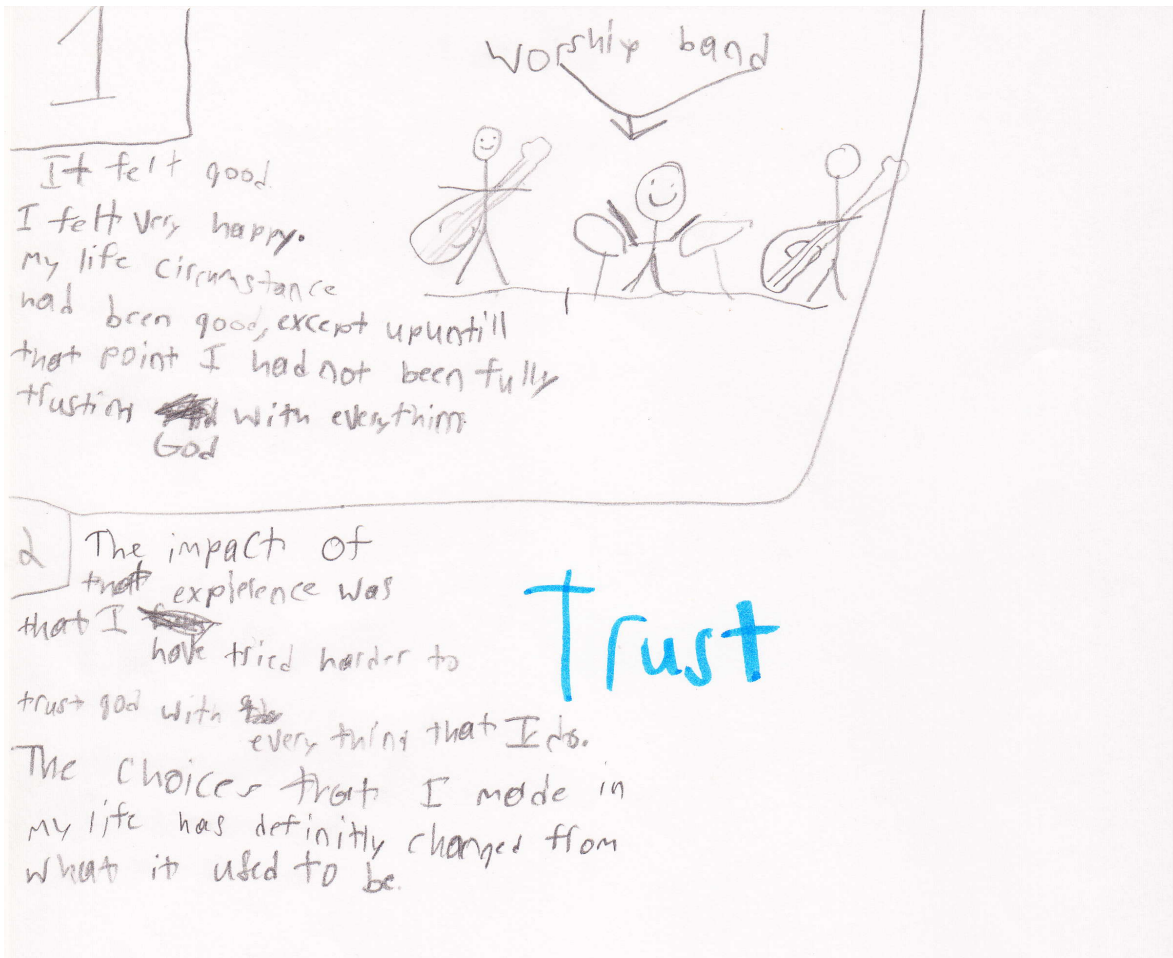 1
worship band
It felt good
I felt very happy.
my life circumstance
had been good, except upuntill
that point I had not been fully
trusting with everything
God
2
The impact of
that expierence was
that I
have tried harder to
trust god with
every thing that I do.
The choices that I made in
my life has definitly changed from
what it used to be.
Trust